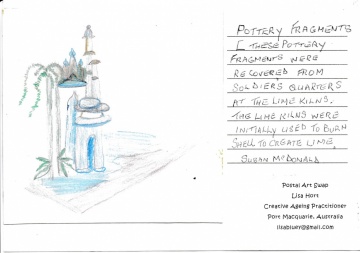 POTTERY FRAGMENTS
[ THESE POTTERY
FRAGMENTS WERE
RECOVERED FROM
SOLDIER'S QUARTERS
AT THE LIME KILNS.
THE LIME KILNS WERE
INITIALLY USED TO BURN
SHELL TO CREATE LIME.
SUSAN McDONALD
Postal Art Swap
Lisa Hort
Creative Ageing Practitioner
Port Macquarie, Australia
lisabluer@gmail.com